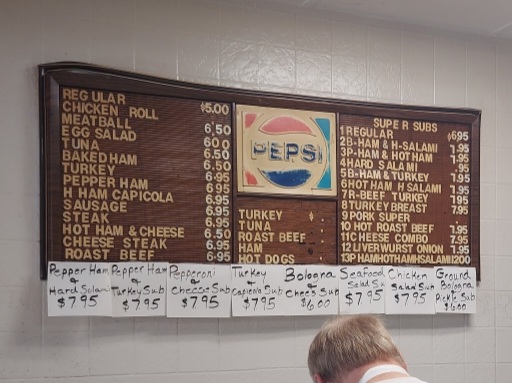 REGULAR
CHICKEN ROLL $5.00
MEATBALL
EGG SALAD 6.50
TUNA 6.00
BAKED HAM 6.50
TURKEY 6.50
PEPPER HAM 6.95
H HAM CAPICOLA 6.95
SAUSAGE 6.95
STEAK 6.95
HOT HAM & CHEESE 6.50
CHEESE STEAK 6.95
ROAST BEEF 6.95
PEPSI
TURKEY $
TUNA
ROAST BEEF
HAM
HOT DOGS
SUPER SUBS
1 REGULAR $695
2B-HAM & H-SALAMI 7.95
3P-HAM & HOT HAM 7.95
4HARD SALAMI 7.95
5B-HAM & TURKEY 7.95
6HOT HAM H SALAMI 7.95
7R-BEEF TURKEY 7.95
8TURKEY BREAST 7.95
9PORK SUPER
10 HOT ROAST BEEF 7.95
11CHEESE COMBO 7.95
12LIVERWURST ONION 7.95
13PHAMHOTHAMHSALAMI1200
Pepper Ham & Hard Salami $7.95
Pepper Ham & Turkey Sub $7.95
Pepperoni & Cheese Sub $7.95
Turkey & Capicola Sub $7.95
Bologna & Cheese Sub $6.00
Seafood Salad Su $7.95
Chicken Salad Sub $7.95
Ground Bologna Pickle Sub $6.00